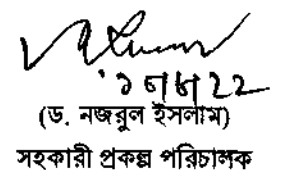 ১৭।৮।22
(ড. নজরুল ইসলাম)
সহকারী প্রকল্প পরিচালক